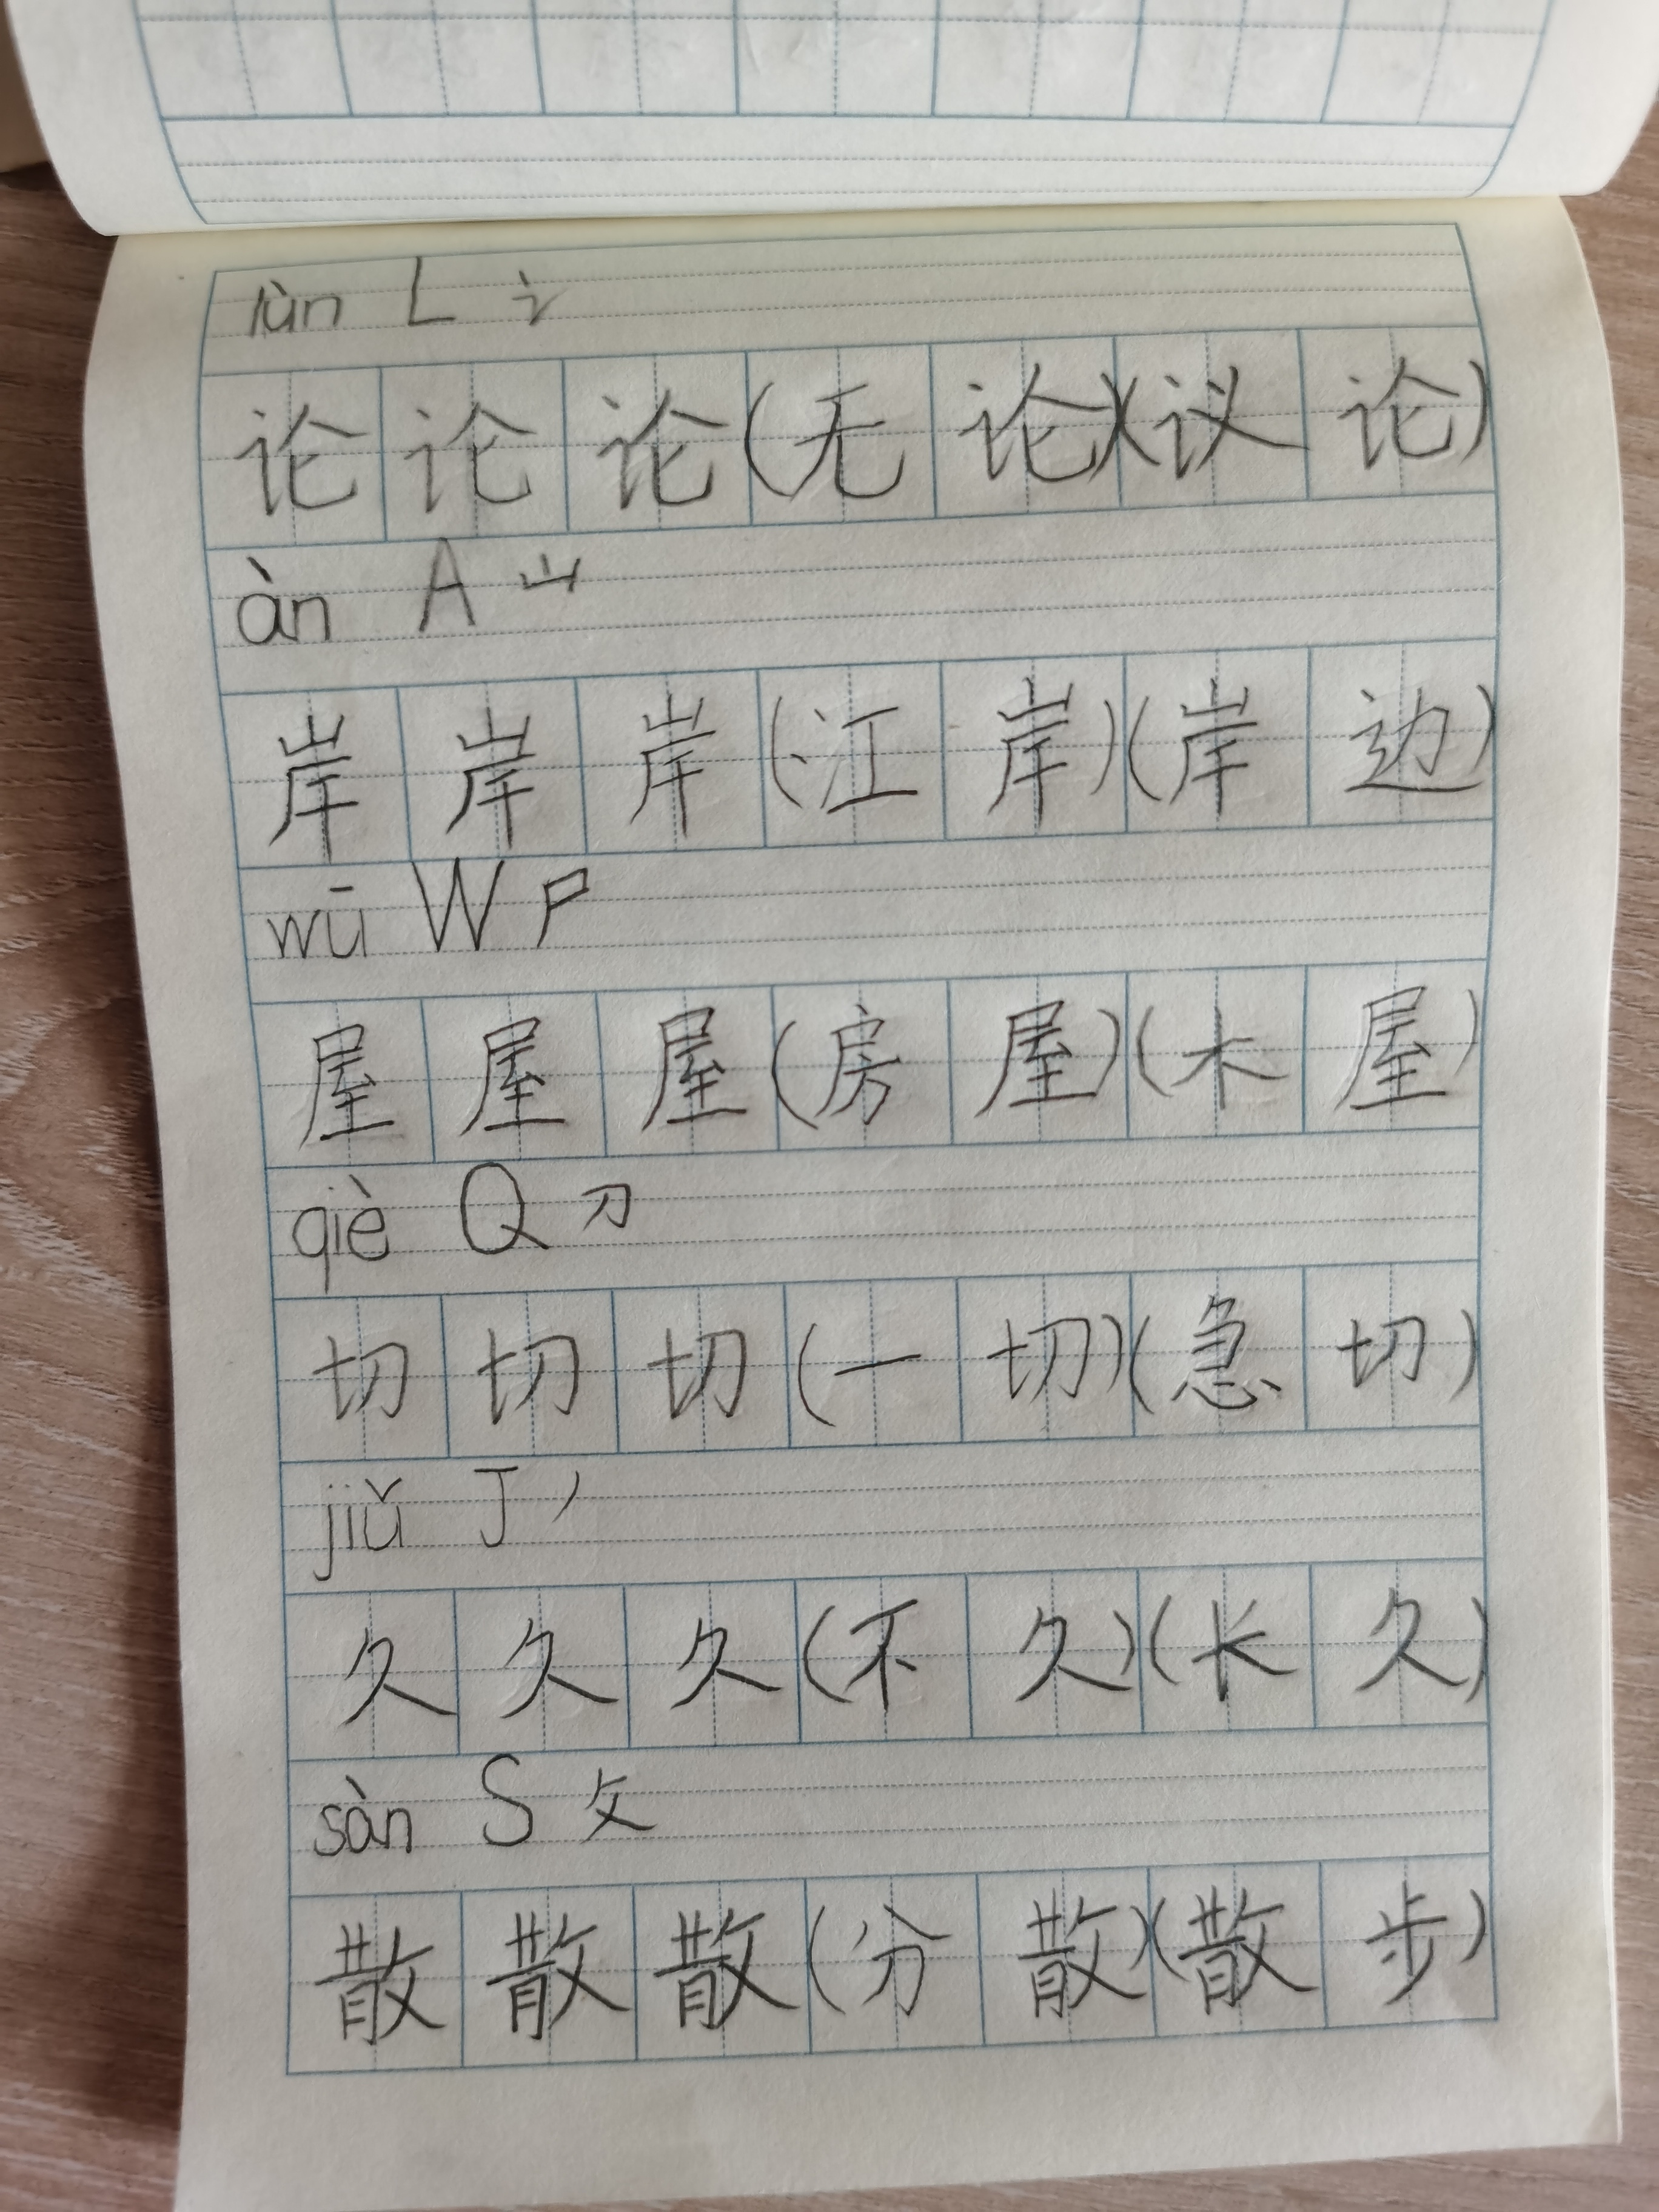 lùn L 讠
论论论(无论)(议论)
àn A 山
岸岸岸(江岸)(岸边)
wū W 尸
屋屋屋(房屋)(木屋)
qiè Q 刀
切切切(一切)(急切)
jiǔ J 丿
久久久(不久)(长久)
sàn S 攵
散散散(分散)(散步)